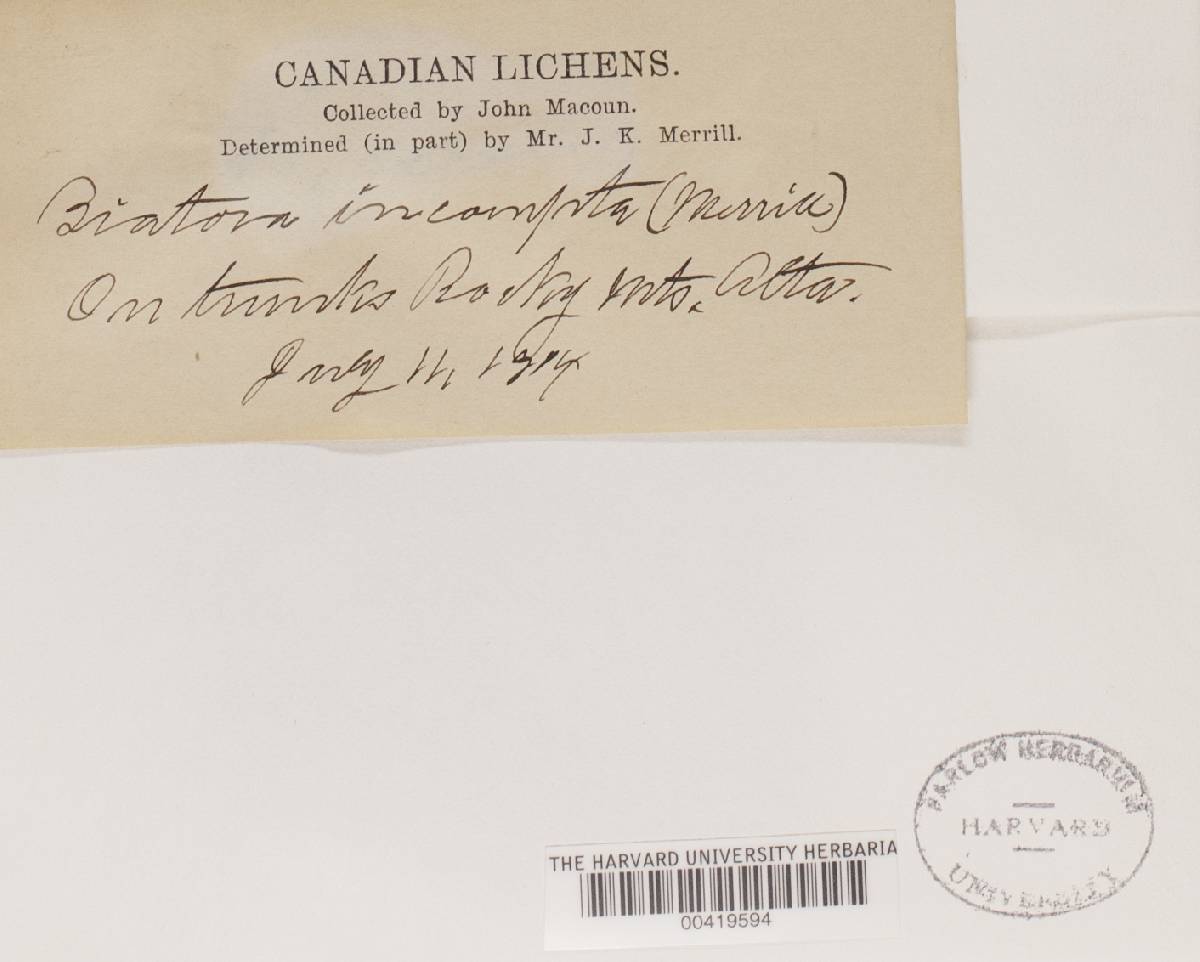 CANADIAN LICHENS.
Collected by John Macoun.
Determined (in part) by Mr. J. K. Merrill.
Biatora incompta (Merrill)
On trunks Rocky Mts. Alta.
July 11, 1904
THE HARVARD UNIVERSITY HERBARIA
00419594
FARLOW HERBARIUM
HARVARD
UNIVERSITY